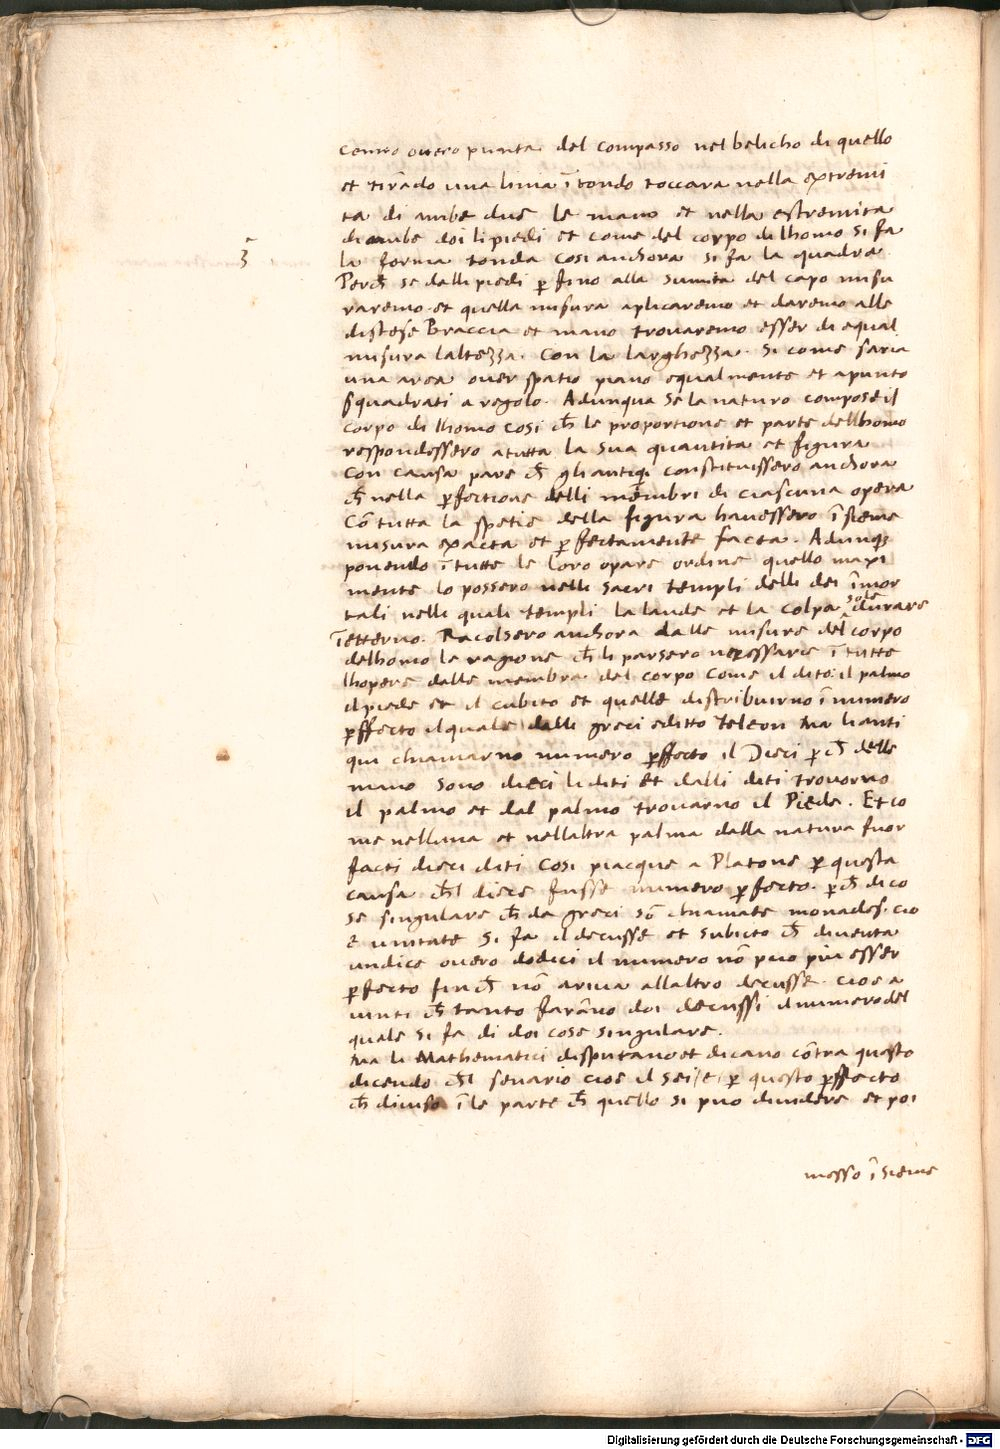 centro overo punta del compasso nel belicho di quello
et tirãdo una linia ĩ tondo toccara nella extremi
ta di ambe due le mano et nella estremita
di ambe doi li piedi et come del corpo de lhomo si fa
3
la forma tonda cosi anchora si fa la quadra.
Perch̃ se dalli piedi p̱ fino alla sumita del capo misu
raremo et quella misura aplicaremo et daremo alle
distese Braccia et mano trovaremo esser di equal
misura laltezza. Con la larghezza. Si come saria
una area over spatio piano equalmente et apunto
squadrati a regolo. Adunqua se la naturo compose il
corpo di lhomo cosi ch̃ le proportione et parte dellhomo
respondessero a tutta la sua quantita et figura
Con causa pare ch̃ gli antiqui constituissero anchora
ch̃ nella p̱fectione delli membri di ciascuna opera
Cõ tutta la spetie della figura havessero ĩ sieme
misura exacta et p̱fectamente facta. Adunq̃
ponendo ĩ tutte le loro opare ordine quello maxi
mente lo possero nelli sacri templi delli dei ĩmor
tali nelli quali templi la laude et la colpa sole durare
ĩ etterno. Racolsero anchora dalle misure del corpo
delhomo le ragione ch̃ li parsero necessarie ĩ tutte
lhopere dalle membra del corpo come il dito: il palmo
il piede et il cubito et quelle distribuirno ĩ numero
p̱ffecto il quale dalli greci e ditto Teleon Ma li anti
qui chiamarno numero p̱ffecto il Dieci p̱ch̃ delle
mano sono dieci li diti et dalli diti trovorno
il palmo et dal palmo trovarno il Piede. Et co
me nelluna et nellaltra palma dalla natura fuor
facti dieci diti Cosi piacque a Platone p̱ questa
causa ch̃l diece fusse numero p̱fecto. p̱ch̃ di co
se singulare ch̃ da greci sõ chiamate monades. cio
e unitate si fa il decusse et subito ch̃ diventa
undice overo dodici il numero nõ puo piu esser
p̱fecto fin ch̃ nõ ariva allaltro decusse. cioe a
vinti ch̃ tanto farãno doi decussi il numero del
quale si fa di doi cose singulare.
Ma li Mathematici disputano et dicano cõtra questo
dicendo ch̃l senario cioe il sei / e / p̱ questo p̱ffecto
ch̃ diviso ĩ le parte ch̃ quello si puo dividere et poi
messo ĩ sieme
Digitalisierung gefördert durch die Deutsche Forschungsgemeinschaft - DFG